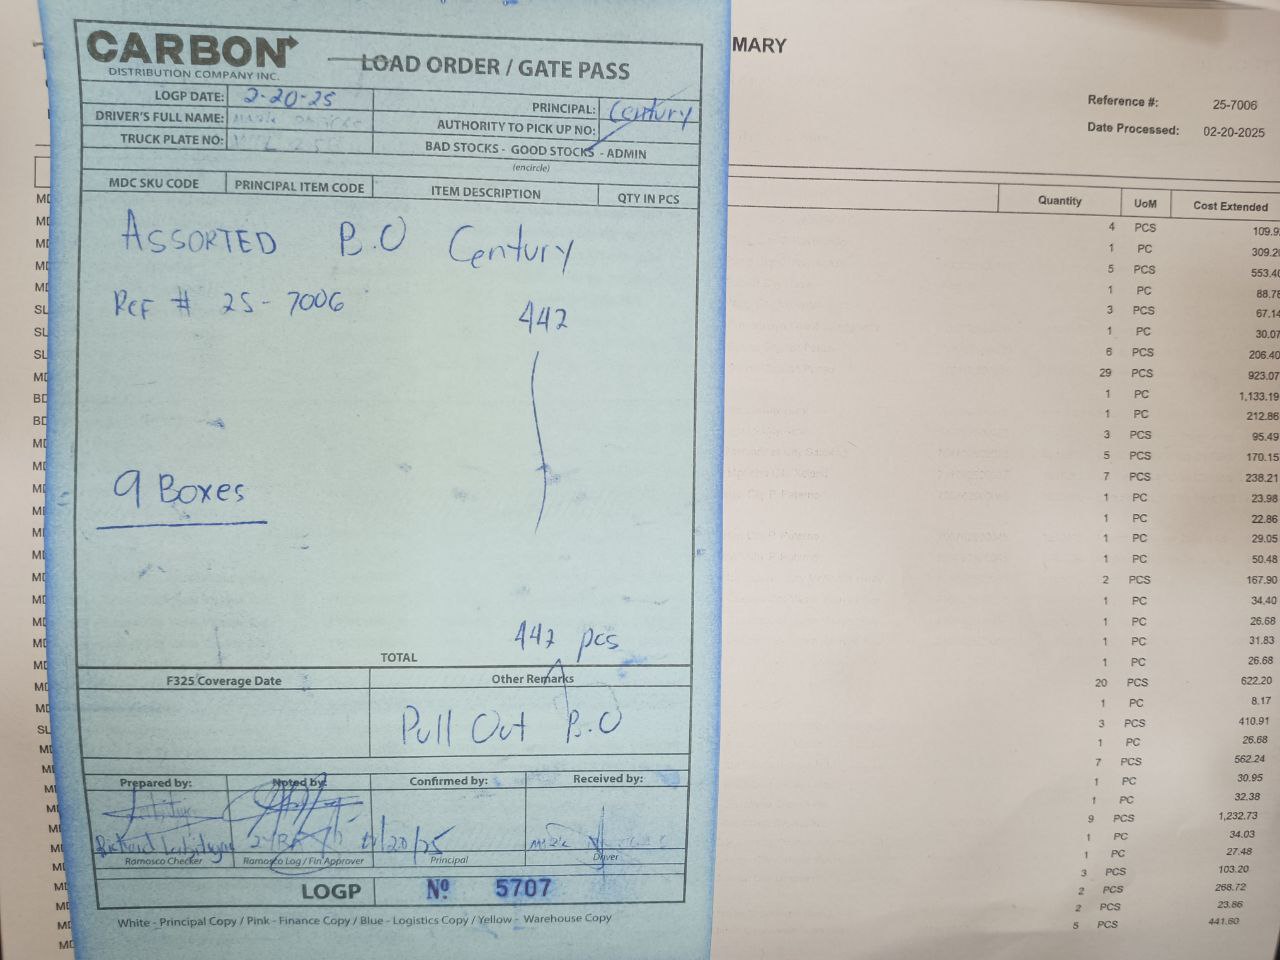 CARBON
DISTRIBUTION COMPANY INC.
LOAD ORDER / GATE PASS
LOGP DATE: 2-20-25
PRINCIPAL: Century
DRIVER'S FULL NAME:
AUTHORITY TO PICK UP NO:
TRUCK PLATE NO:
BAD STOCKS - GOOD STOCKS - ADMIN
(encircle)
MDC SKU CODE PRINCIPAL ITEM CODE ITEM DESCRIPTION QTY IN PCS
ASSORTED B.O Century
REF # 25-7006 442
9 Boxes
442 pcs
TOTAL
F325 Coverage Date Other Remarks
Pull Out B.O
Prepared by: Noted by: Confirmed by: Received by:
Richard 20/25
Ramosco Checker Ramosco Log / Fin Approver Principal Driver
LOGP Nº 5707
White - Principal Copy / Pink - Finance Copy / Blue - Logistics Copy / Yellow - Warehouse Copy
MARY
Reference #: 25-7006
Date Processed: 02-20-2025
Quantity UoM Cost Extended
4 PCS 109.9
1 PC 309.20
5 PCS 553.40
1 PC 88.78
3 PCS 67.14
1 PC 30.07
6 PCS 206.40
29 PCS 923.07
1 PC 1,133.19
1 PC 212.86
3 PCS 95.49
5 PCS 170.15
7 PCS 238.21
1 PC 23.98
1 PC 22.86
1 PC 29.05
1 PC 50.48
2 PCS 167.90
1 PC 34.40
1 PC 26.68
1 PC 31.83
1 PC 26.68
20 PCS 622.20
1 PC 8.17
3 PCS 410.91
1 PC 26.68
7 PCS 562.24
1 PC 30.95
1 PC 32.38
9 PCS 1,232.73
1 PC 34.03
1 PC 27.48
3 PCS 103.20
2 PCS 268.72
2 PCS 23.86
5 PCS 441.60